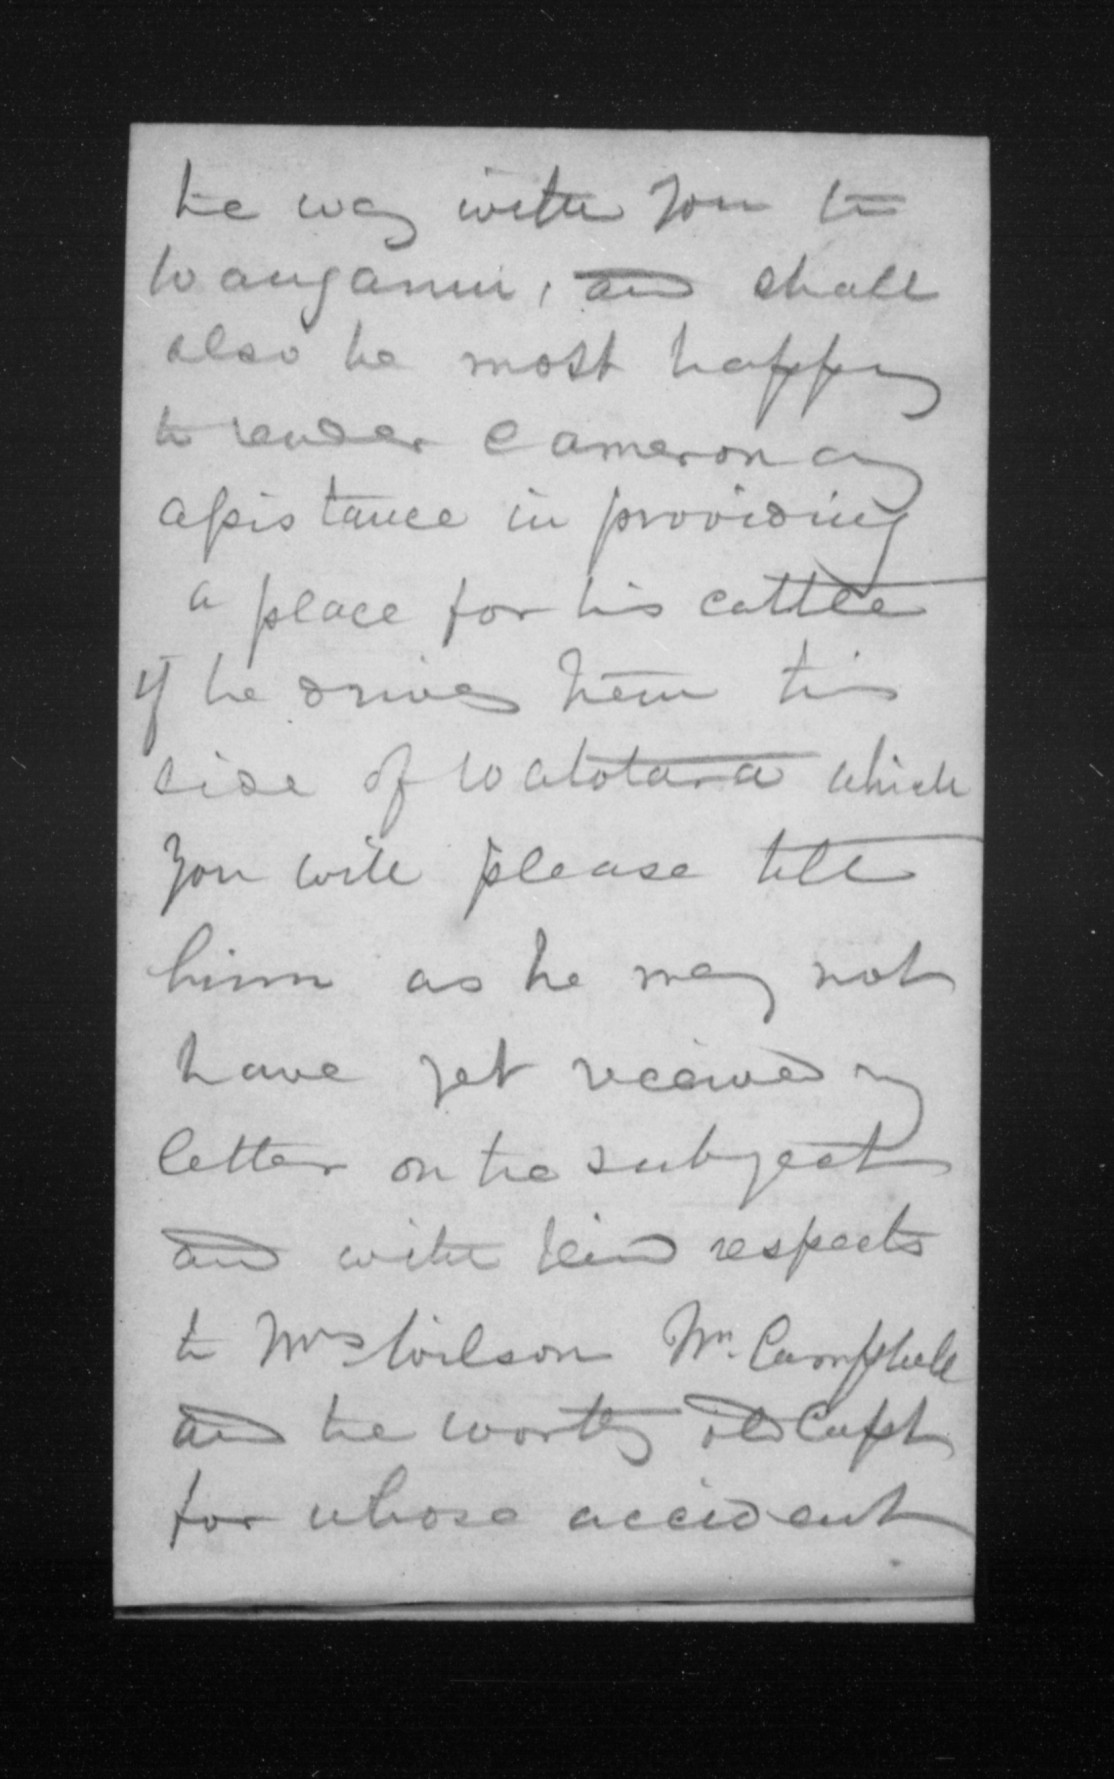 the way with you to
Wanganui, and shall
also be most happy
to render Cameron any
assistance in providing
a place for his cattle
if he drives them this
side of Watotara which
you will please tell
him as he may not
have yet received my
letter on the subject
and with kind respects
to Mrs Wilson Wm. Campbell
and the worthy old Capt
for whose accident